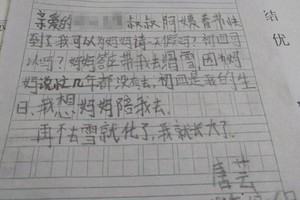 亲爱的 叔叔阿姨春节快
到了我可以为妈妈请 假吗？初四可
以吗？妈妈答应带我去滑雪，因为妈
妈说这几年都没有去，初四是我的生
日，我想妈妈陪我去。
再不去雪就化了，我就长大了。
唐芸
结
优